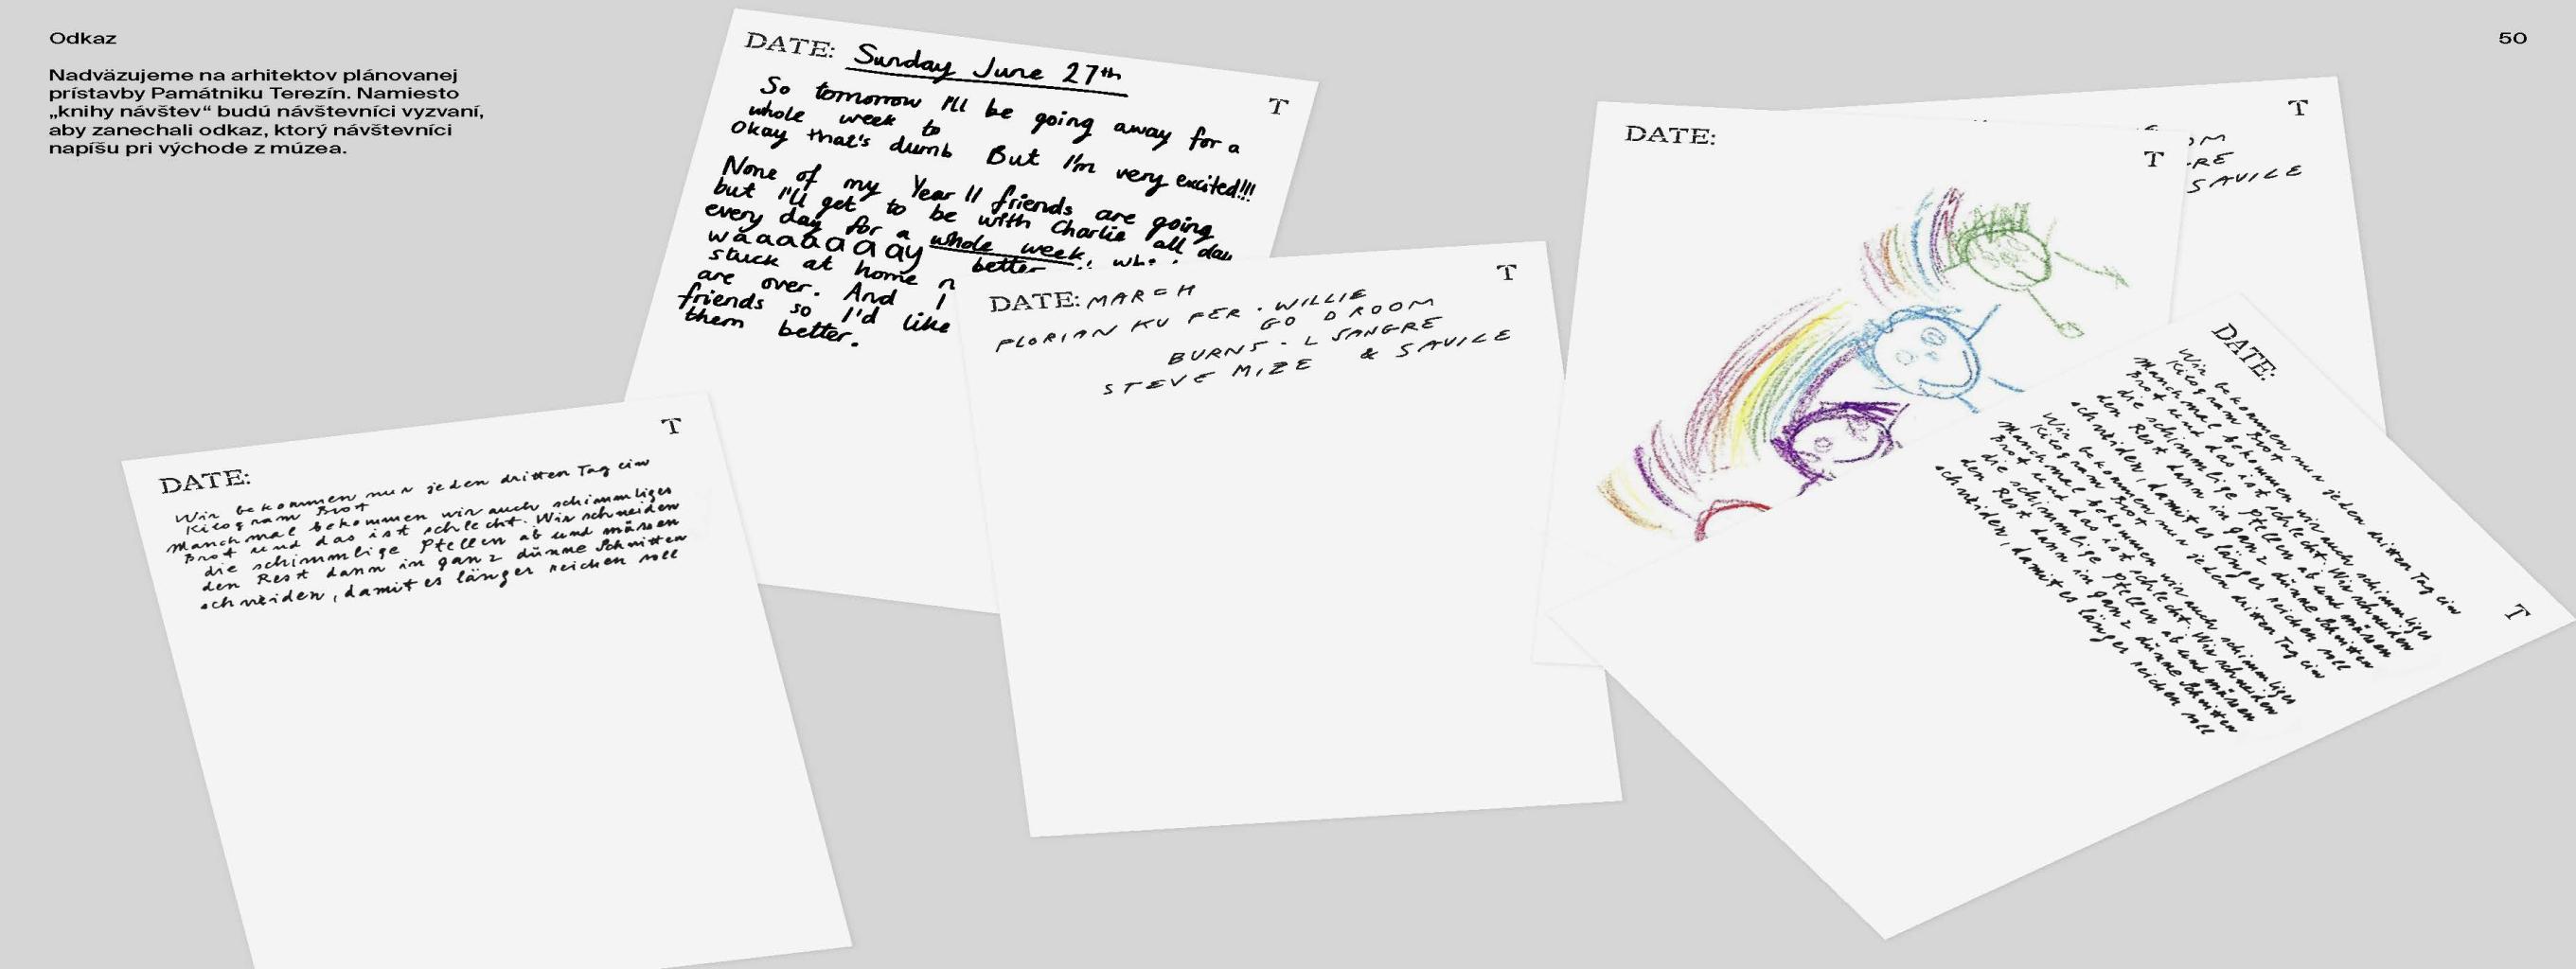 Odkaz
50
Nadväzujeme na arhitektov plánovanej
prístavby Památniku Terezín. Namiesto
„knihy návštev“ budú návštevníci vyzvaní,
aby zanechali odkaz, ktorý návštevníci
napíšu pri východe z múzea.
DATE: Sunday June 27th
T
So tomorrow I'll be going away for a
whole week to
Okay that's dumb But I'm very excited!!!
None of my Year 11 friends are going
but I'll get to be with Charlie all day
every day for a whole week,
waaaaaaay better
stuck at home
are over. And I
friends so I'd like
them better.
DATE: MARCH
T
FLORIAN KU FER . WILLIE
GO D ROOM
BURNS . L SANGRE
STEVE MIZE & SAVILE
DATE:
T
Wir bekommen nur jeden dritten Tag ein
Kilogram Brot
Manchmal bekommen wir auch schimmliges
Brot und das ist schlecht. Wir schneiden
die schimmlige Ptellen ab und müssen
den Rest dann in ganz dünne Schnitten
schneiden, damit es länger reichen soll
DATE:
T
T
OM
RE
SAVILE
DATE:
T
Wir bekommen nur jeden dritten Tag ein
Kilogram Brot
Manchmal bekommen wir auch schimmliges
Brot und das ist schlecht. Wir schneiden
die schimmlige Ptellen ab und müssen
den Rest dann in ganz dünne Schnitten
schneiden, damit es länger reichen soll
Wir bekommen nur jeden dritten Tag ein
Kilogram Brot
Manchmal bekommen wir auch schimmliges
Brot und das ist schlecht. Wir schneiden
die schimmlige Ptellen ab und müssen
den Rest dann in ganz dünne Schnitten
schneiden, damit es länger reichen soll